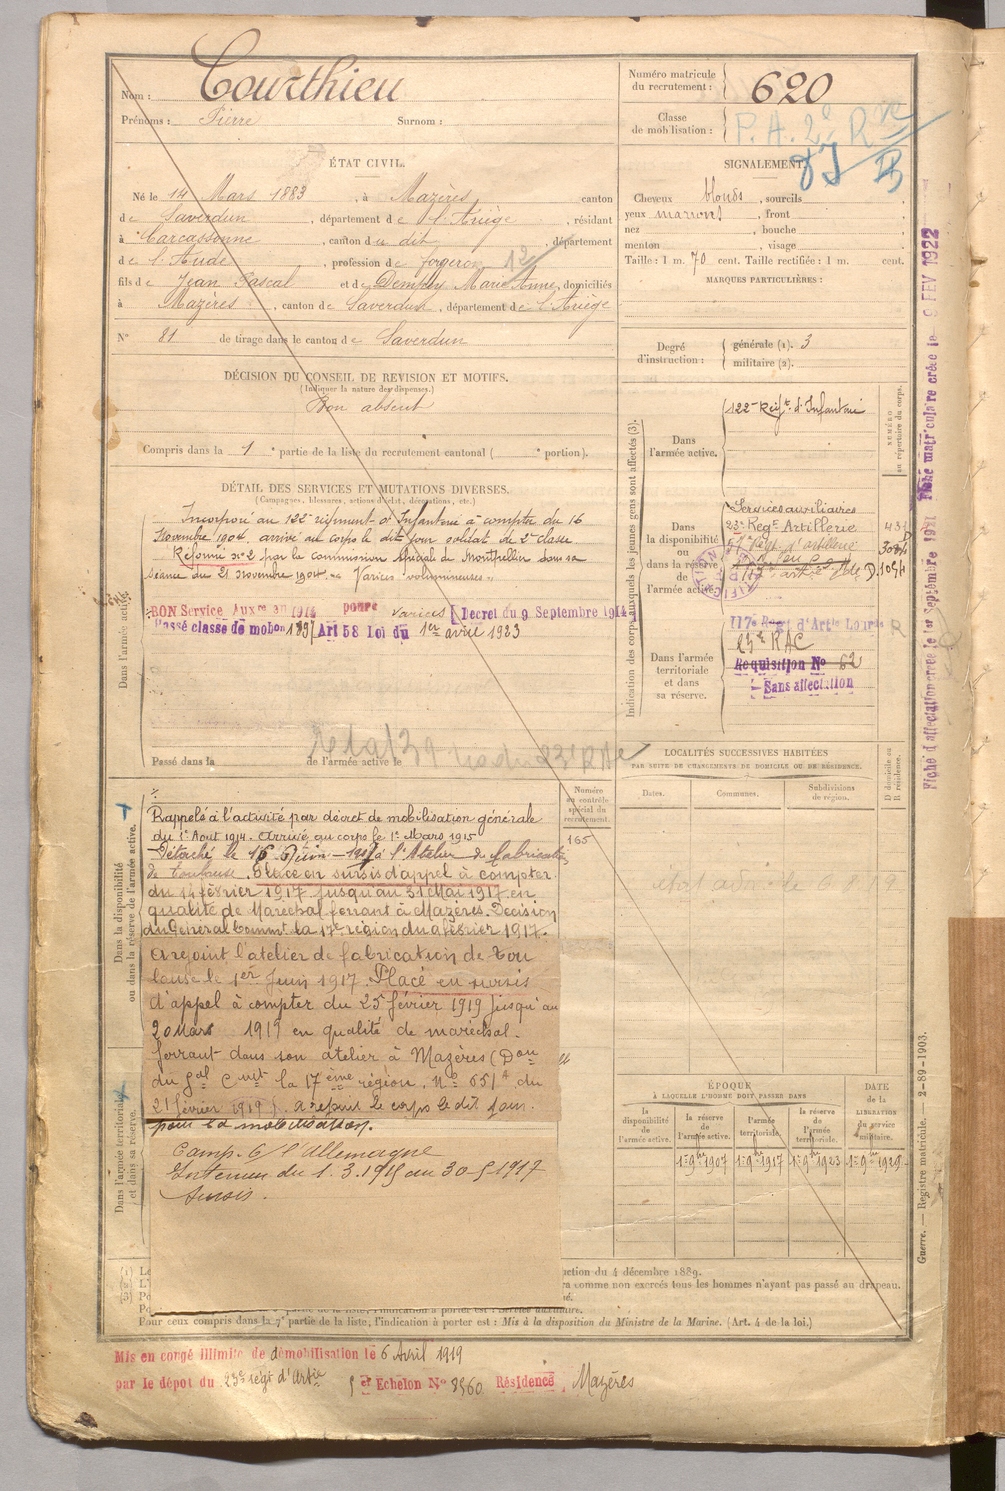 Nom : Courthieu
Prénoms : Pierre Surnom :
Numéro matricule du recrutement : 620
Classe de mobilisation :
P. A. 2e R
ÉTAT CIVIL.
Né le 14 Mars 1883, à Mazères canton
de Saverdun, département de l'Ariège, résidant
à Carcassonne, canton du dit, département
de l'Aude, profession de forgeron 12
fils de Jean Pascal et de Marie Anne, domiciliés
à Mazères, canton de Saverdun, département de l'Ariège
N° 81 de tirage dans le canton de Saverdun
SIGNALEMENT.
Cheveux blonds, sourcils
yeux marrons, front
nez, bouche
menton, visage
Taille : 1 m. 70 cent. Taille rectifiée : 1 m. cent.
MARQUES PARTICULIÈRES :
Degré d'instruction : générale (1). 3
militaire (2).
DÉCISION DU CONSEIL DE REVISION ET MOTIFS.
(Indiquer la nature des dispenses.)
Bon absent
Compris dans la 1e partie de la liste du recrutement cantonal ( e portion).
DÉTAIL DES SERVICES ET MUTATIONS DIVERSES.
(Campagnes, blessures, actions d'éclat, décorations, etc.)
Dans l'armée active.
Incorporé au 122e régiment d'Infanterie à compter du 16
Novembre 1904, arrivé au corps le dit jour soldat de 2e classe.
Réformé n° 2 par la commission spéciale de Montpellier dans sa
séance du 21 novembre 1904
BON Service Auxre en 1914 pour varices Décret du 9 Septembre 1914
Passé classe de mobon 1897 Art 58 Loi du 1er avril 1923
Passé dans la de l'armée active le
Indication des corps auxquels les jeunes gens sont affectés (3).
NUMÉRO au répertoire du corps.
Dans l'armée active.
122e Regt d'Infanterie
Dans la disponibilité ou dans la réserve de l'armée active
Services auxiliaires
23e Regt Artillerie
Dans l'armée territoriale et dans sa réserve.
117e Regt d'Artie Lourde
23e RAC
Requisition No 62
Sans affectation
LOCALITÉS SUCCESSIVES HABITÉES
PAR SUITE DE CHANGEMENTS DE DOMICILE OU DE RÉSIDENCE.
Dates. Communes. Subdivisions de région.
D domicile ou R résidence.
Numéro au contrôle spécial du recrutement.
165
Dans la disponibilité ou dans la réserve de l'armée active.
Rappelé à l'activité par décret de mobilisation générale
du 1er Août 1914. Arrivé au corps le 1er Mars 1915
Détaché le 16 Juin à l'Atelier de fabrication
de Toulouse. Placé en sursis d'appel à compter
du 14 février 1917 jusqu'au 31 Mai 1917 en
qualité de Maréchal ferrant à Mazères. Décision
du Général Commt la 17e région du février 1917.
A rejoint l'atelier de fabrication de Tou
louse le 1er Juin 1917. Placé en sursis
d'appel à compter du 25 février 1919 jusqu'au
20 Mars 1919 en qualité de maréchal
ferrant dans son atelier à Mazères (Don
du gal Cmdt la 17ème région, No 651 du
21 février 1919). a rejoint le corps le dit jour
pour la mobilisation.
Dans l'armée territoriale et dans sa réserve.
Camp. c/ l'Allemagne
Intérieur du 1.3.1915 au 30.5.1917
Sursis.
ÉPOQUE
À LAQUELLE L'HOMME DOIT PASSER DANS
la disponibilité de l'armée active.
la réserve de l'armée active.
l'armée territoriale.
la réserve de l'armée territoriale.
DATE de la LIBÉRATION du service militaire.
1er 9bre 1907 1er 9bre 1917 1er 9bre 1923 1er 9bre 1929
ction du 4 décembre 1889.
comme non exercés tous les hommes n'ayant pas passé au drapeau.
Pour ceux compris dans la 7e partie de la liste, l'indication à porter est : Mis à la disposition du Ministre de la Marine. (Art. 4 de la loi.)
Mis en congé illimité de démobilisation le 6 Avril 1919
par le dépot du 23e régt d'Artie 5 er Echelon No 8960 Résidence Mazères
Guerre. — Registre matricule. — 2-89-1903.
Fiche matriculaire créée le 9 FEV 1922